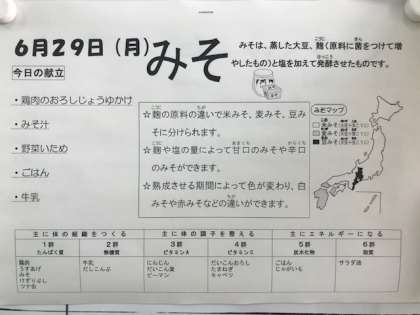 6月29日（月）みそ
みそは、蒸した大豆、麹（原料に菌をつけて増
やしたもの）と塩を加えて発酵させたものです。
今日の献立
・鶏肉のおろしじょうゆかけ
・みそ汁
・野菜いため
・ごはん
・牛乳
☆麹の原料の違いで米みそ、麦みそ、豆み
そに分けられます。
☆麹や塩の量によって甘口のみそや辛口
のみそができます。
☆熟成させる期間によって色が変わり、白
みそや赤みそなどの違いができます。
みそマップ
主に体の組織をつくる 主に体の調子を整える 主にエネルギーになる
1群 2群 3群 4群 5群 6群
たんぱく質 無機質 ビタミンA ビタミンC 炭水化物 脂質
鶏肉 牛乳 にんじん だいこんおろし ごはん サラダ油
うすあげ だしこんぶ だいこん葉 たまねぎ じゃがいも
みそ ピーマン キャベツ
けずりぶし
ツナ缶